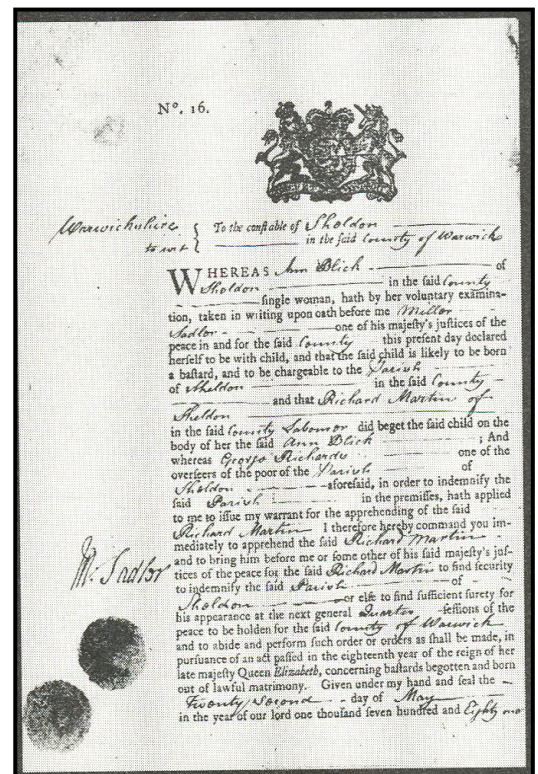 Nº. 16.
Warwickshire { To the constable of Sheldon
to wit { in the said County of Warwick
WHEREAS Ann Blick of
Sheldon in the said County
single woman, hath by her voluntary examina-
tion, taken in writing upon oath before me Miller
Sadler one of his majesty's justices of the
peace in and for the said County this present day declared
herself to be with child, and that the said child is likely to be born
a bastard, and to be chargeable to the Parish
of Sheldon in the said County
and that Richard Martin of
Sheldon
in the said County Labourer did beget the said child on the
body of her the said Ann Blick ; And
whereas George Richards one of the
overseers of the poor of the Parish of
Sheldon aforesaid, in order to indemnify the
said Parish in the premisses, hath applied
to me to issue my warrant for the apprehending of the said
Richard Martin I therefore hereby command you im-
mediately to apprehend the said Richard Martin
and to bring him before me or some other of his said majesty's jus-
tices of the peace for the said Richard Martin to find security
to indemnify the said Parish of
Sheldon or else to find sufficient surety for
his appearance at the next general Quarter sessions of the
peace to be holden for the said County of Warwick
and to abide and perform such order or orders as shall be made, in
pursuance of an act passed in the eighteenth year of the reign of her
late majesty Queen Elizabeth, concerning bastards begotten and born
out of lawful matrimony. Given under my hand and seal the
Twenty second day of May
in the year of our lord one thousand seven hundred and Eighty one
M. Sadler